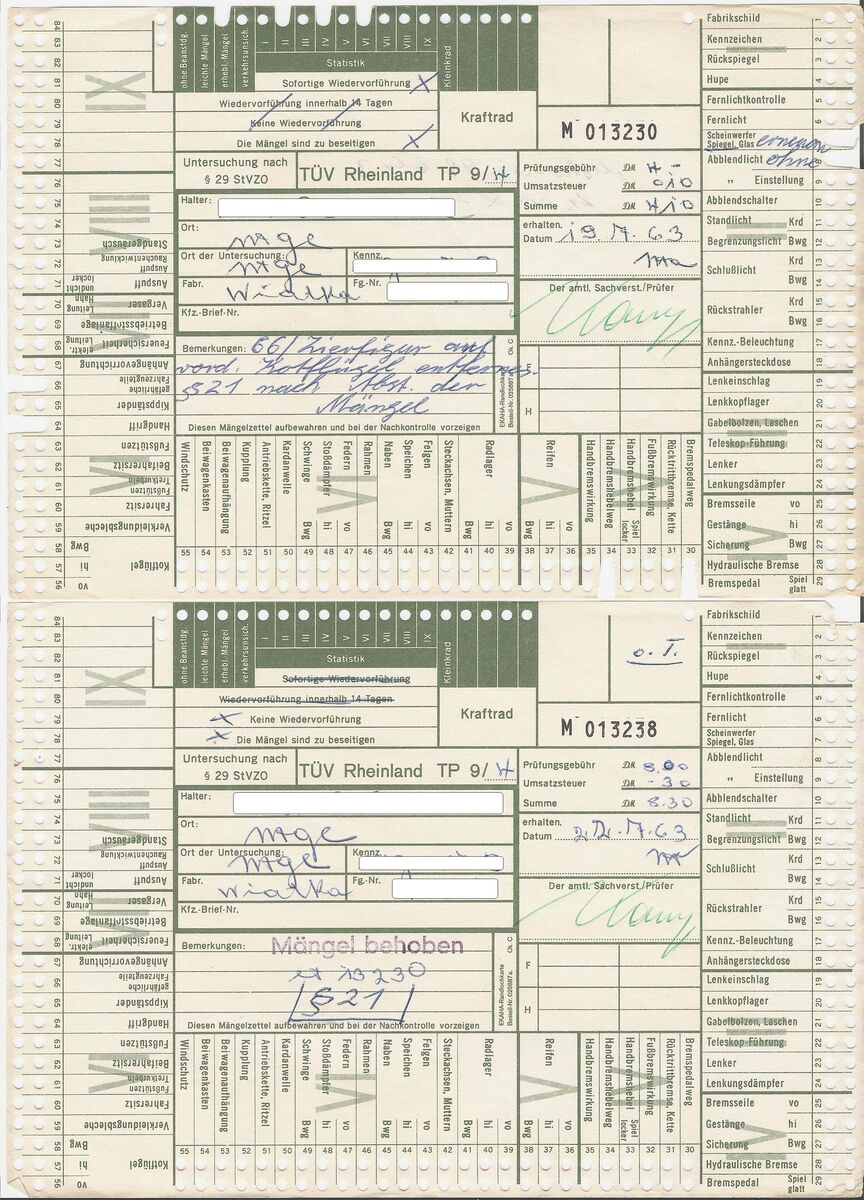 ohne Beanstdg.
leichte Mängel
erhebl. Mängel
verkehrsunsich.
I II III IV V VI VII VIII IX
Kleinkrad
Statistik
Sofortige Wiedervorführung X
Wiedervorführung innerhalb 14 Tagen
Keine Wiedervorführung
Die Mängel sind zu beseitigen X
Kraftrad
M 013230
Untersuchung nach
§ 29 StVZO
TÜV Rheinland TP 9/
Prüfungsgebühr DM
Umsatzsteuer DM
Summe DM
Halter:
Ort:
Ort der Untersuchung:
Kennz.
Fabr. Wiatka
Fg.-Nr.
Kfz.-Brief-Nr.
erhalten.
Datum 19.7.63
Der amtl. Sachverst./Prüfer
Bemerkungen: 66/Zierfigur auf
vord. Kotflügel entfernen.
§ 21 nach Abst. der
Mängel
Diesen Mängelzettel aufbewahren und bei der Nachkontrolle vorzeigen
EKAHA-Randlochkarte
Bestell-Nr. 025887a.
Ok C
F
H
Fabrikschild 1
Kennzeichen 2
Rückspiegel 3
Hupe 4
Fernlichtkontrolle 5
Fernlicht 6
Scheinwerfer
Spiegel, Glas erneuern
Abblendlicht ohne 8
„ Einstellung 9
Abblendschalter 10
Standlicht Krd 11
Begrenzungslicht Bwg 12
Schlußlicht
Krd 13
Bwg 14
Rückstrahler
Krd 15
Bwg 16
Kennz.-Beleuchtung 17
Anhängersteckdose 18
Lenkeinschlag 19
Lenkkopflager 20
Gabelbolzen, Laschen 21
Teleskop-Führung 22
Lenker 23
Lenkungsdämpfer 24
Bremsseile vo 25
Gestänge hi 26
Sicherung Bwg 27
Hydraulische Bremse 28
Bremspedal Spiel glatt 29
84
83
82
81
80
79
78
77
76
75
74
73 Standgeräusch
72 Auspuff Rauchentwicklung
71 Auspuff undicht locker
70 Vergaser Hahn Leitung
69 Betriebsstoffanlage
68 Feuersicherheit elektr. Leitung
67 Anhängevorrichtung
66 gefährliche Fahrzeugteile
65 Kippständer
64 Handgriff
63 Fußstützen
62 Beifahrersitz
61 Fußstützen Tretkurbeln
60 Fahrersitz
59 Verkleidungsbleche
58 Bwg
57 hi
56 vo
Kotflügel
IX
VIII
VII
VI
V
Windschutz
Beiwagenkasten
Beiwagenaufhängung
Kupplung
Antriebskette, Ritzel
Kardanwelle
Schwinge Bwg
Stoßdämpfer hi
Federn vo
Rahmen
Naben Bwg
Speichen hi
Felgen vo
Steckachsen, Muttern
Radlager Bwg hi vo
Reifen Bwg hi vo
Handbremswirkung
Handbremshebelweg
Handbremshebel Spiel locker
Fußbremswirkung
Rücktrittbremse, Kette
Bremspedalweg
55 54 53 52 51 50 49 48 47 46 45 44 43 42 41 40 39 38 37 36 35 34 33 32 31 30
ohne Beanstdg.
leichte Mängel
erhebl. Mängel
verkehrsunsich.
I II III IV V VI VII VIII IX
Kleinkrad
Statistik
Sofortige Wiedervorführung
Wiedervorführung innerhalb 14 Tagen
X Keine Wiedervorführung
X Die Mängel sind zu beseitigen
Kraftrad
o.T.
M 013238
Untersuchung nach
§ 29 StVZO
TÜV Rheinland TP 9/
Prüfungsgebühr DM 8.00
Umsatzsteuer DM -30
Summe DM 8.30
Halter:
Ort:
Ort der Untersuchung:
Kennz.
Fabr. Wiatka
Fg.-Nr.
Kfz.-Brief-Nr.
erhalten.
Datum 22.7.63
Der amtl. Sachverst./Prüfer
Bemerkungen: Mängel behoben
13230
§ 21
Diesen Mängelzettel aufbewahren und bei der Nachkontrolle vorzeigen
EKAHA-Randlochkarte
Bestell-Nr. 025887a.
Ok C
F
H
Fabrikschild 1
Kennzeichen 2
Rückspiegel 3
Hupe 4
Fernlichtkontrolle 5
Fernlicht 6
Scheinwerfer
Spiegel, Glas 7
Abblendlicht 8
„ Einstellung 9
Abblendschalter 10
Standlicht Krd 11
Begrenzungslicht Bwg 12
Schlußlicht
Krd 13
Bwg 14
Rückstrahler
Krd 15
Bwg 16
Kennz.-Beleuchtung 17
Anhängersteckdose 18
Lenkeinschlag 19
Lenkkopflager 20
Gabelbolzen, Laschen 21
Teleskop-Führung 22
Lenker 23
Lenkungsdämpfer 24
Bremsseile vo 25
Gestänge hi 26
Sicherung Bwg 27
Hydraulische Bremse 28
Bremspedal Spiel glatt 29
84
83
82
81
80
79
78
77
76
75
74
73 Standgeräusch
72 Auspuff Rauchentwicklung
71 Auspuff undicht locker
70 Vergaser Hahn Leitung
69 Betriebsstoffanlage
68 Feuersicherheit elektr. Leitung
67 Anhängevorrichtung
66 gefährliche Fahrzeugteile
65 Kippständer
64 Handgriff
63 Fußstützen
62 Beifahrersitz
61 Fußstützen Tretkurbeln
60 Fahrersitz
59 Verkleidungsbleche
58 Bwg
57 hi
56 vo
Kotflügel
IX
VIII
VII
VI
V
Windschutz
Beiwagenkasten
Beiwagenaufhängung
Kupplung
Antriebskette, Ritzel
Kardanwelle
Schwinge Bwg
Stoßdämpfer hi
Federn vo
Rahmen
Naben Bwg
Speichen hi
Felgen vo
Steckachsen, Muttern
Radlager Bwg hi vo
Reifen Bwg hi vo
Handbremswirkung
Handbremshebelweg
Handbremshebel Spiel locker
Fußbremswirkung
Rücktrittbremse, Kette
Bremspedalweg
55 54 53 52 51 50 49 48 47 46 45 44 43 42 41 40 39 38 37 36 35 34 33 32 31 30